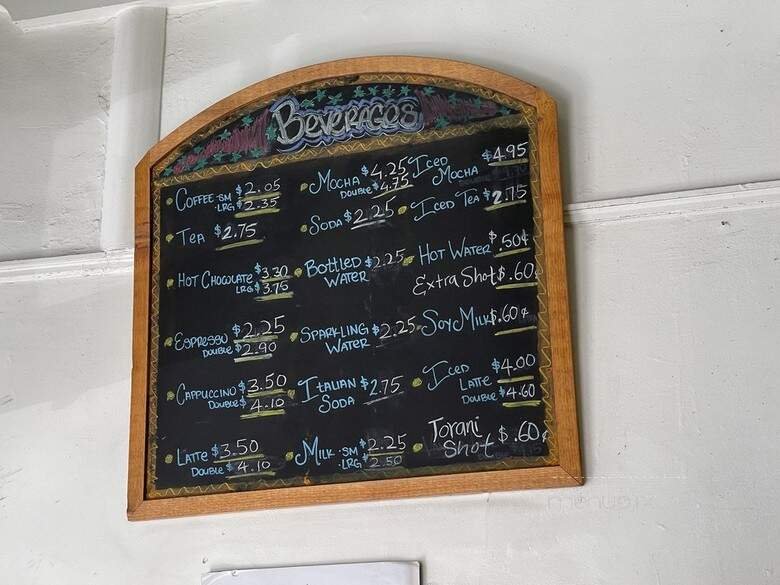 Beverages
Coffee SM $2.05
LRG $2.35
Tea $2.75
Hot Chocolate $3.30
LRG $3.75
Espresso $2.25
Double $2.90
Cappuccino $3.50
Double $4.10
Latte $3.50
Double $4.10
Mocha $4.25
Double $4.75
Soda $2.25
Bottled $2.25
Water
Sparkling $2.25
Water
Italian $2.75
Soda
Milk SM $2.25
LRG 2.50
Iced $4.95
Mocha
Iced Tea $2.75
Hot Water $.50¢
Extra Shot $.60¢
Soy Milk $.60¢
Iced $4.00
Latte
Double $4.60
Torani
Shot $.60¢
menupix